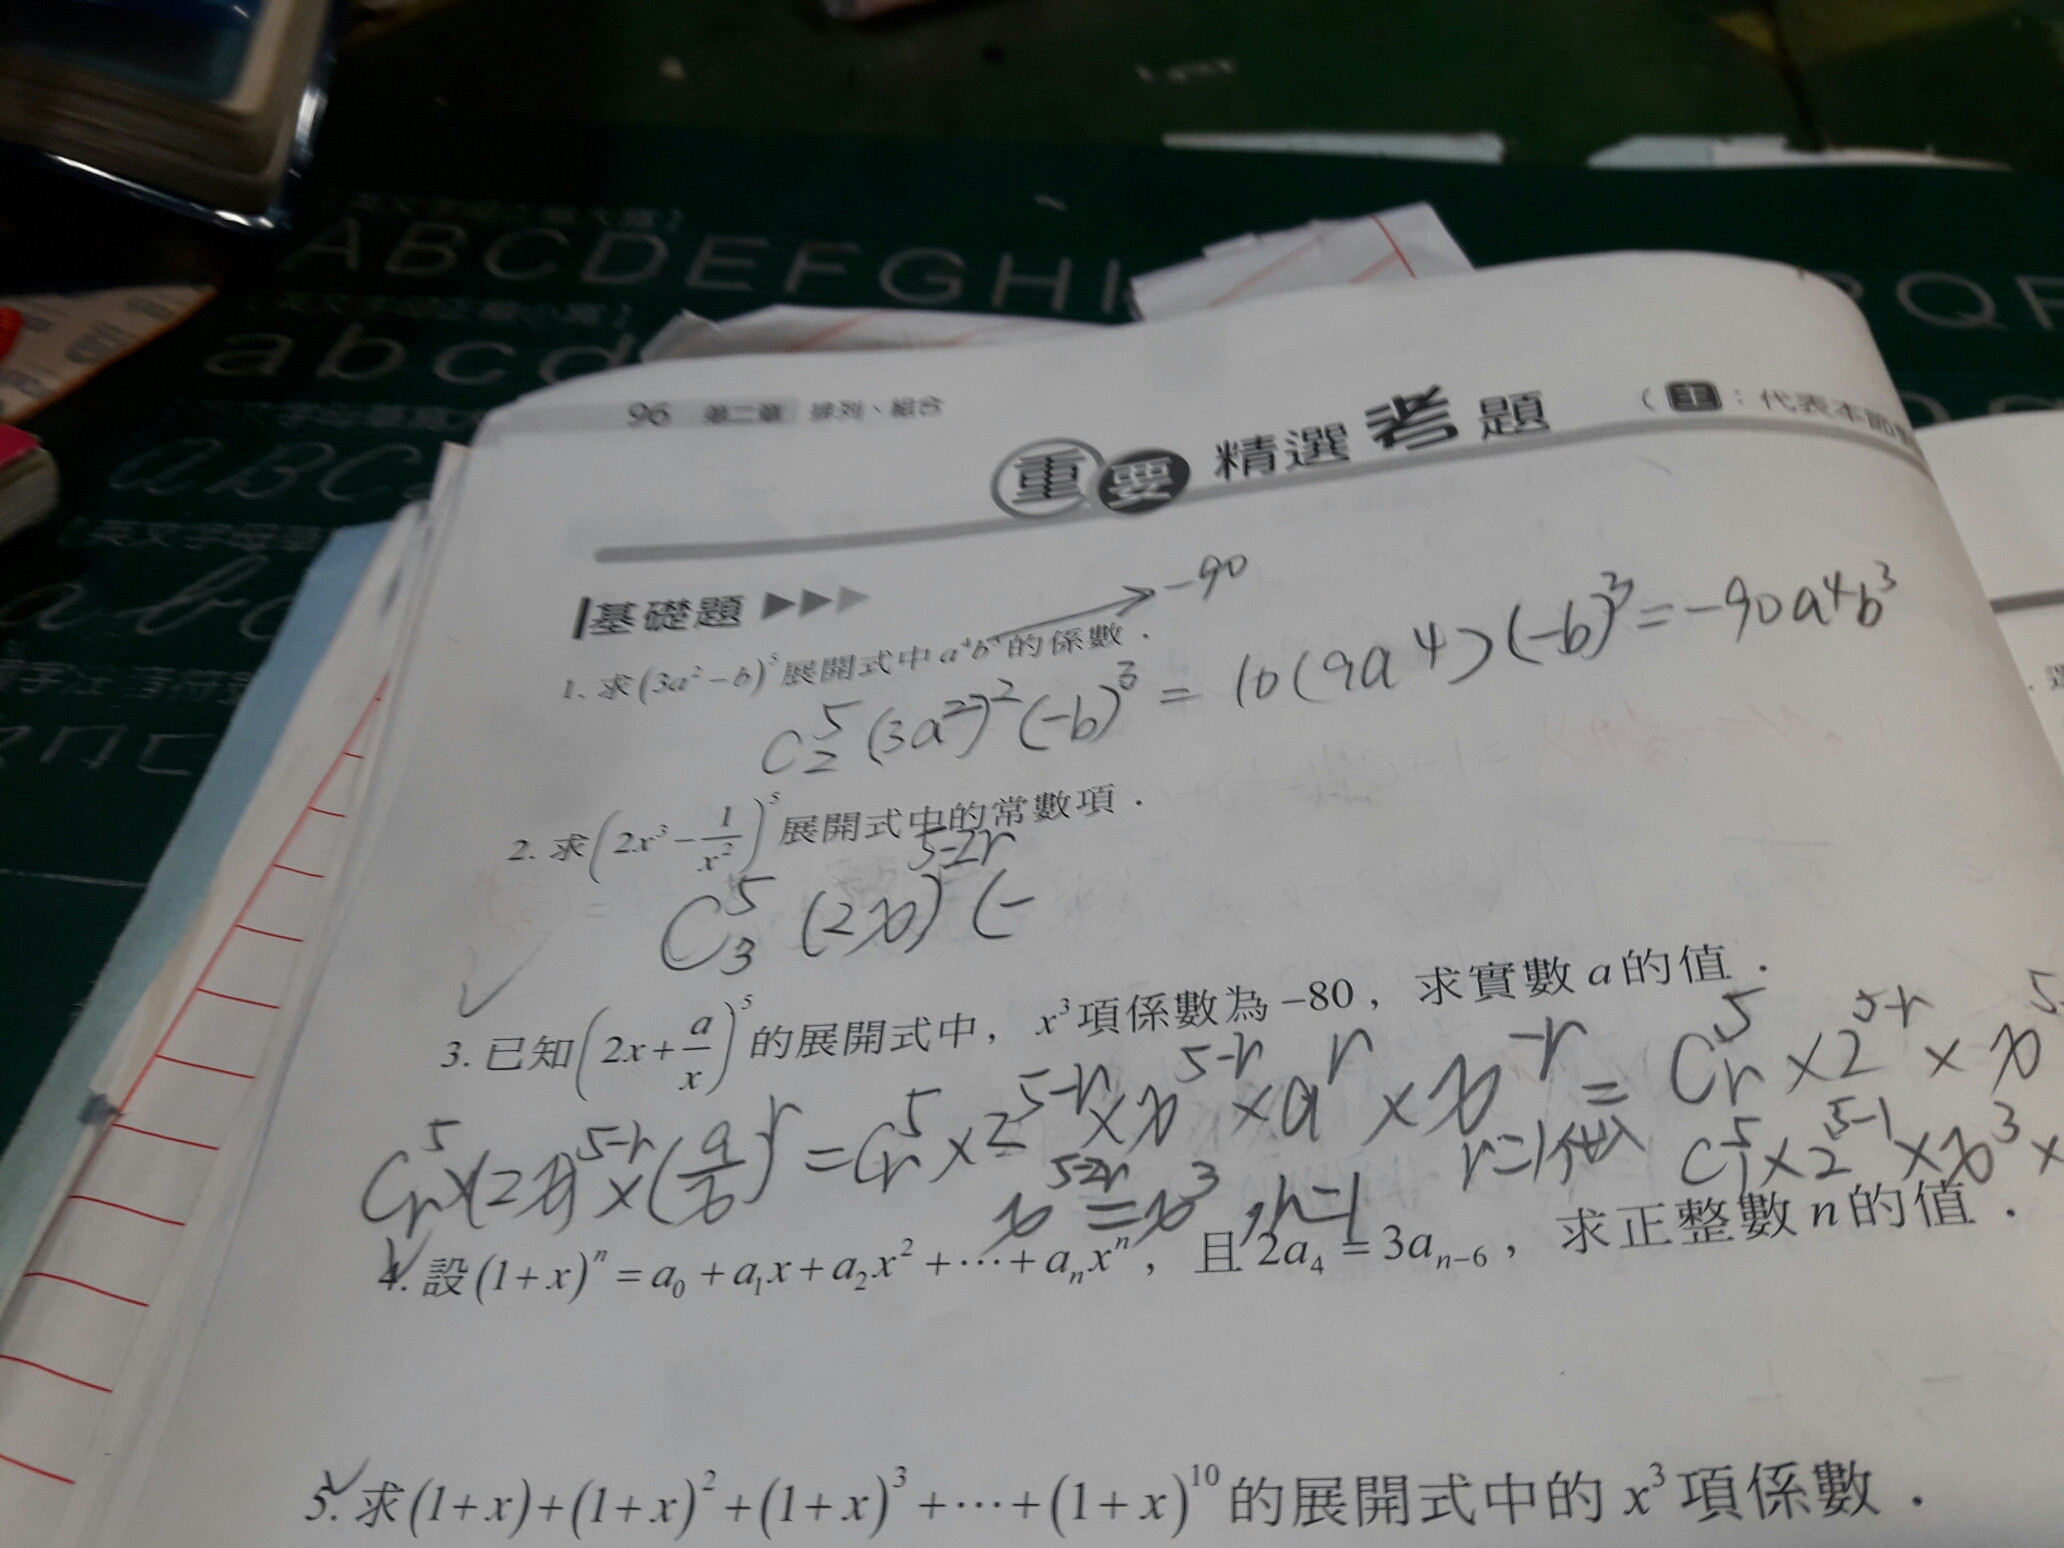 ABCDEFGHI
QF
abcd
aBC
ab
96 第二章 排列、組合
重要精選考題
(主:代表本節
基礎題
-90
1. 求(3a²-b)⁵展開式中a⁴b³的係數.
C⁵₂(3a²)²(-b)³=10(9a⁴)(-b)³=-90a⁴b³
2. 求(2x³-1/x²)⁵展開式中的常數項.
C⁵₃(2x)⁵⁻²ʳ(-
3. 已知(2x+a/x)⁵的展開式中,x³項係數為-80,求實數a的值.
C⁵ᵣ×(2x)⁵⁻ʳ×(a/x)ʳ=C⁵ᵣ×2⁵⁻ʳ×x⁵⁻ʳ×aʳ×x⁻ʳ=C⁵ᵣ×2⁵⁻ʳ×x⁵
x⁵⁻²ʳ=x³,r=1 r=1代入 C⁵₁×2⁵⁻¹×x³×
4. 設(1+x)ⁿ=a₀+a₁x+a₂x²+⋯+aₙxⁿ,且2a₄=3aₙ₋₆,求正整數n的值.
5. 求(1+x)+(1+x)²+(1+x)³+⋯+(1+x)¹⁰的展開式中的x³項係數.